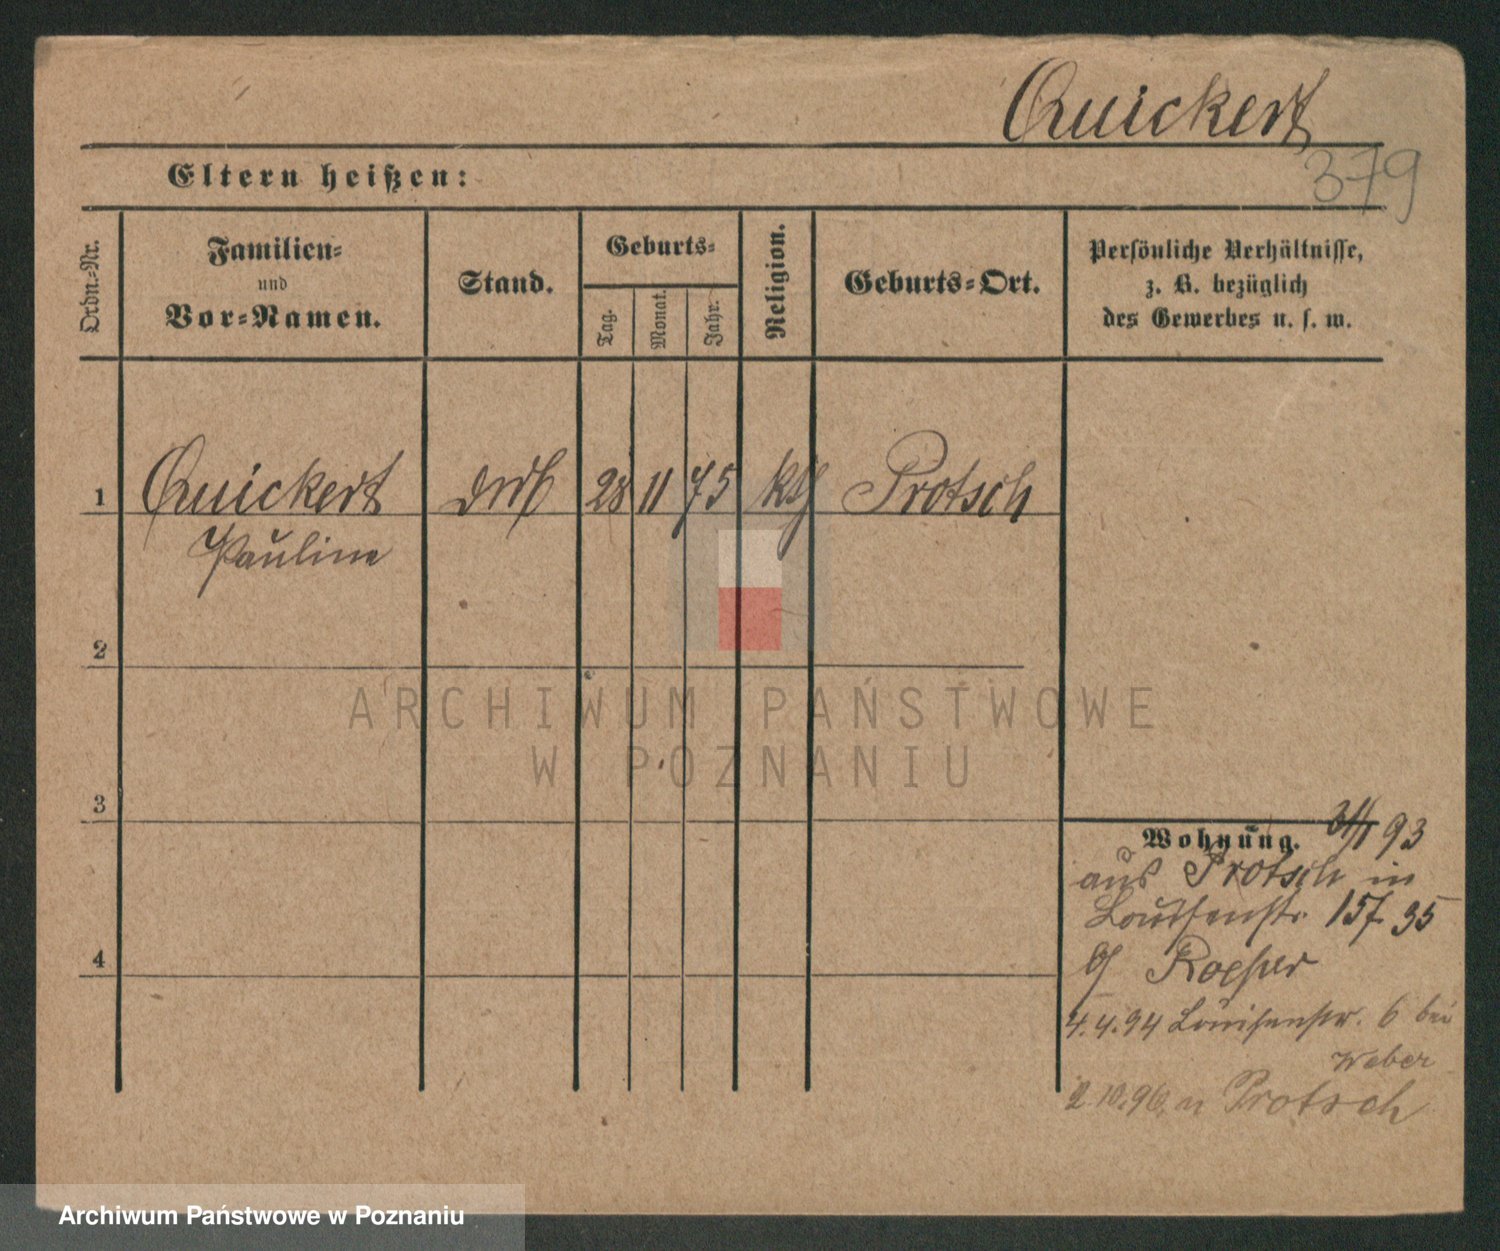 Quickert
379
Eltern heißen:
Ordn.-Nr.
Familien-
und
Vor-Namen.
Stand.
Geburts-
Tag.
Monat.
Jahr.
Religion.
Geburts-Ort.
Persönliche Verhältnisse,
z. B. bezüglich
des Gewerbes u. s. w.
1 Quickert 28 11 75 kth Protsch
Pauline
2
3
4
Wohnung. 93
aus Protsch in
Louisenstr. 157
4.4.94 Louisenstr. 6 bei
Weber
2.10.96 n Protsch
ARCHIWUM PAŃSTWOWE
W POZNANIU
Archiwum Państwowe w Poznaniu